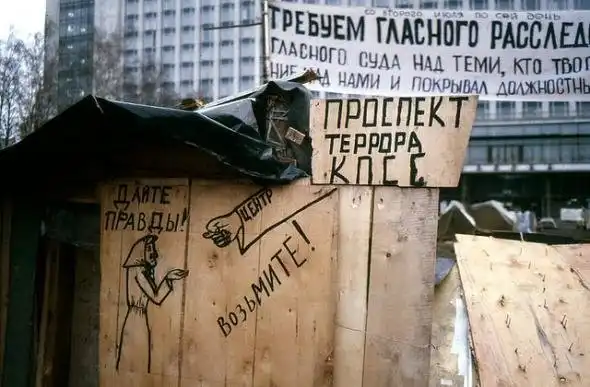 СО ВТОРОГО ИЮЛЯ ПО СЕЙ ДЕНЬ
ТРЕБУЕМ ГЛАСНОГО РАССЛЕД
ГЛАСНОГО СУДА НАД ТЕМИ, КТО ТВОР
НИЕ НАД НАМИ И ПОКРЫВАЛ ДОЛЖНОСТНЫ
ПРОСПЕКТ
ТЕРРОРА
КПСС
ДАЙТЕ
ПРАВДЫ!
ЦЕНТР
ВОЗЬМИТЕ!